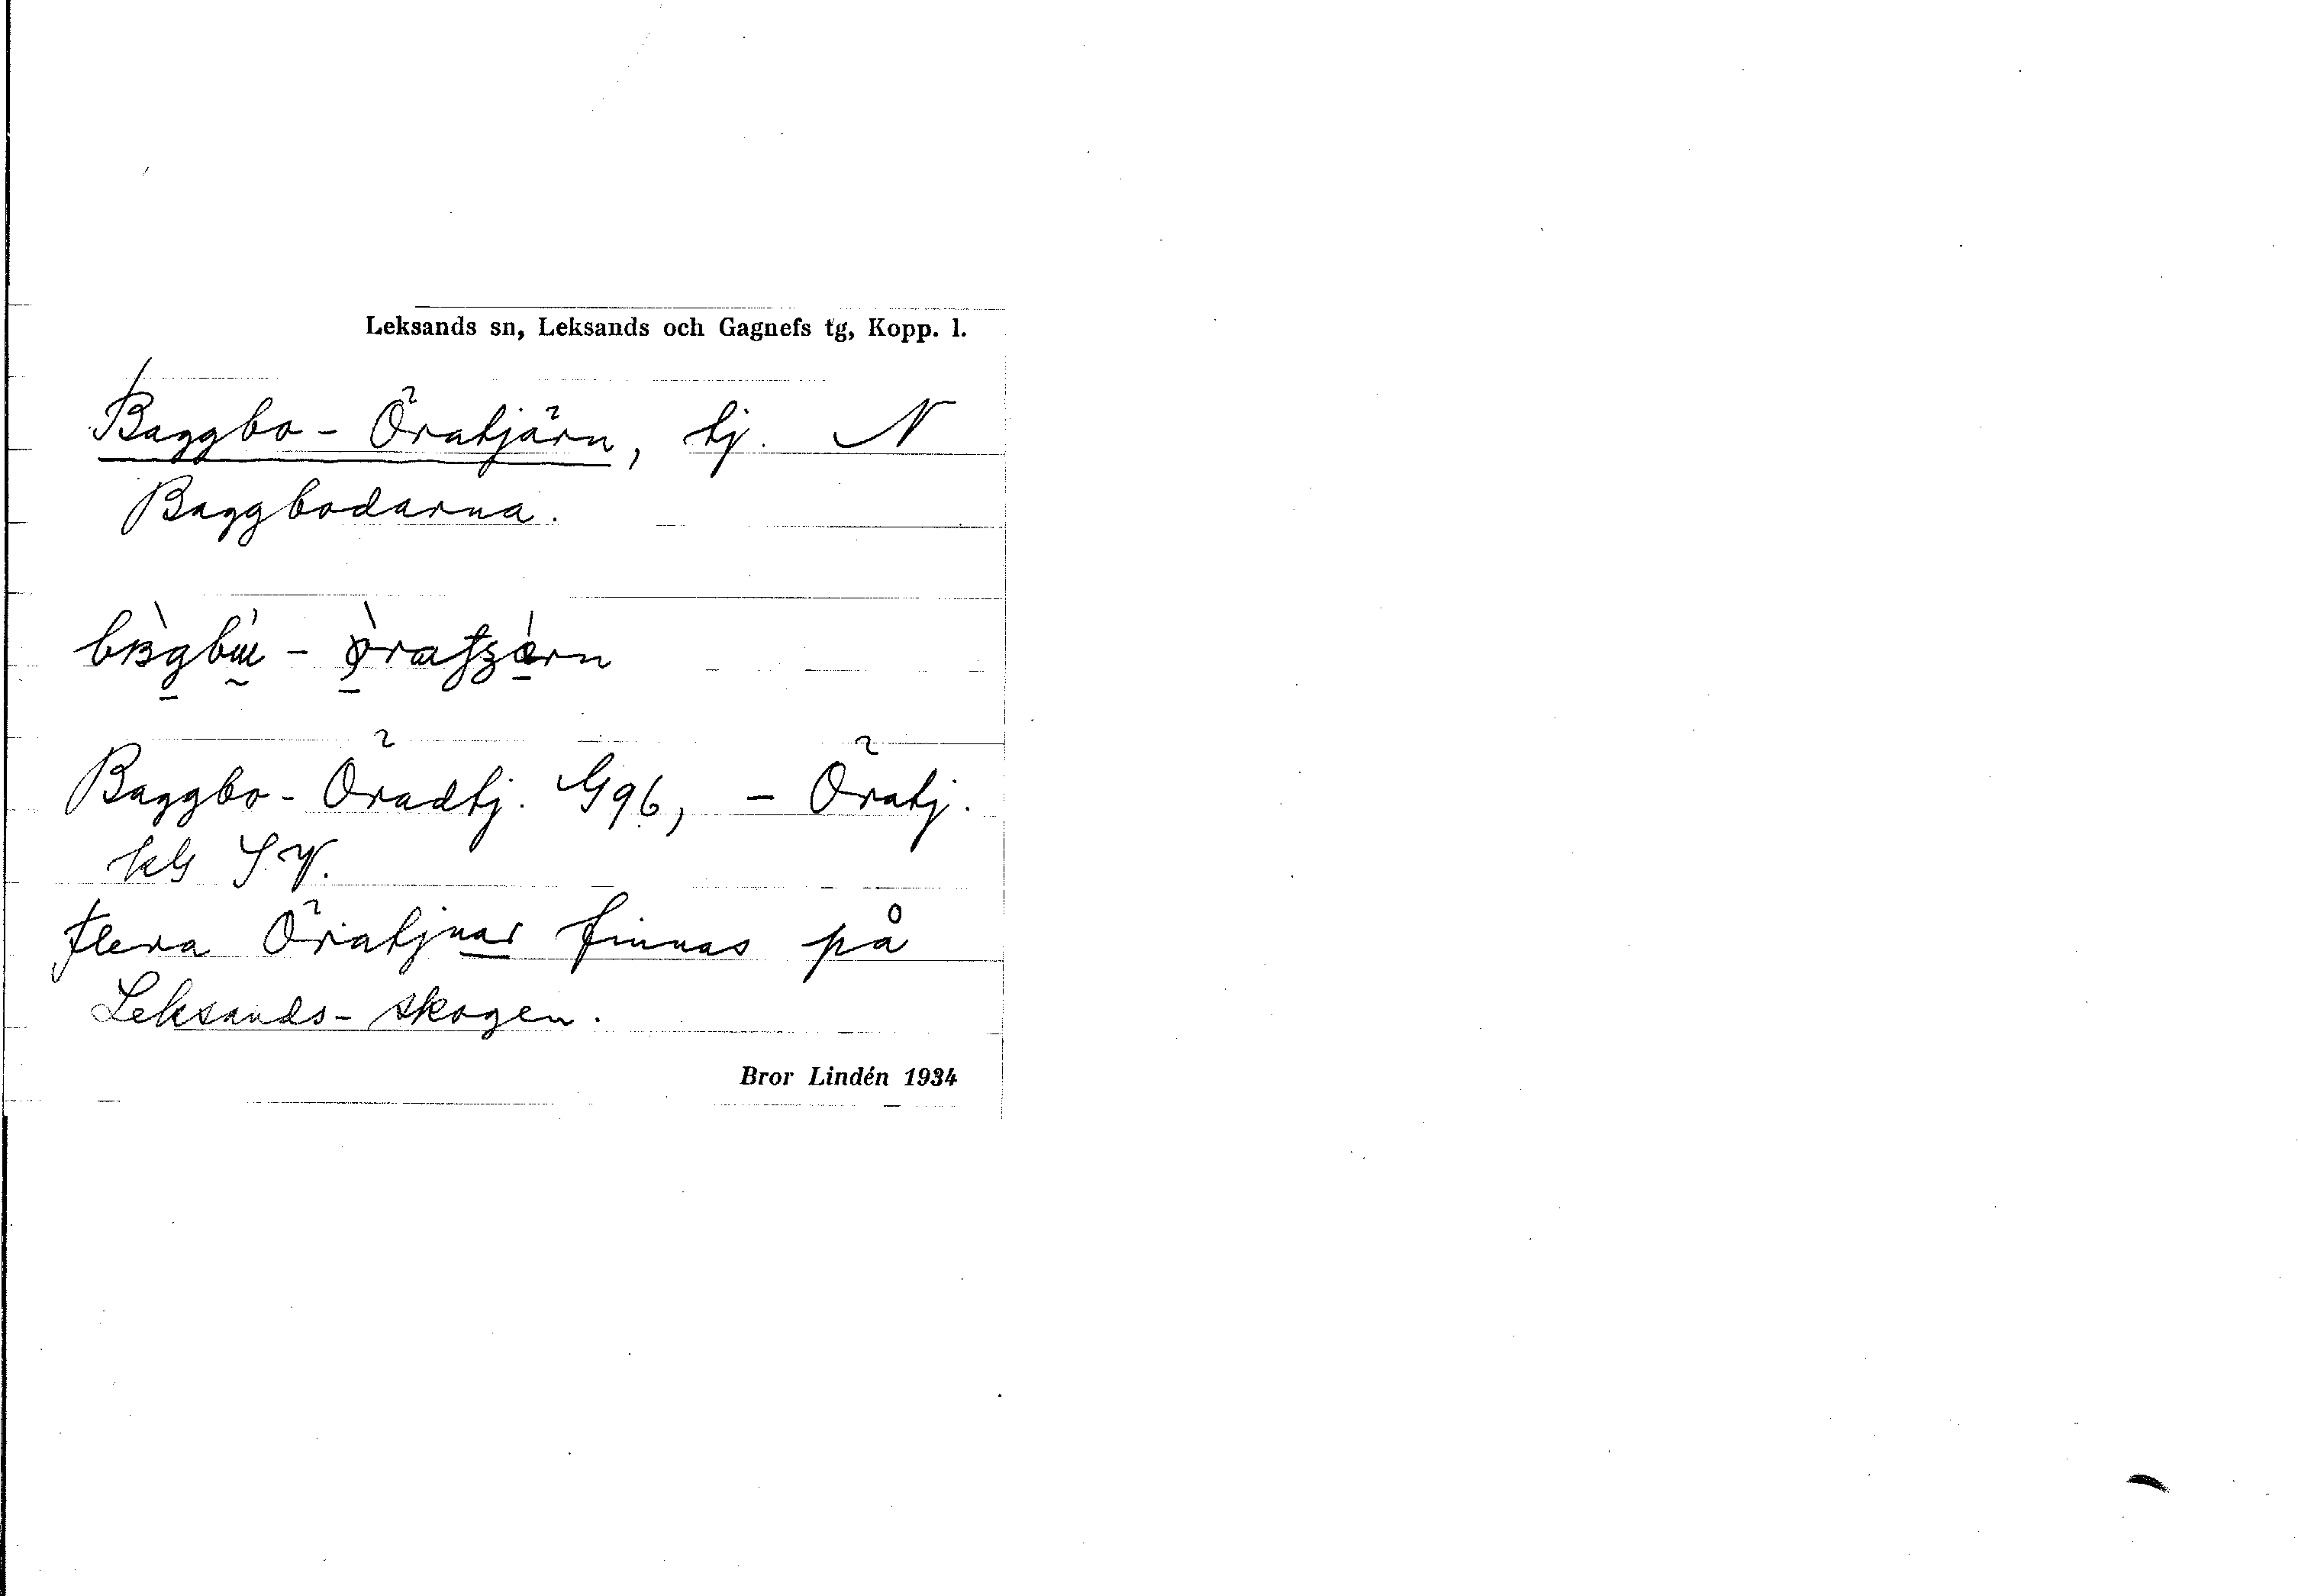 Leksands sn, Leksands och Gagnefs tg, Kopp. l.
Baggbo-Öratjärn, tj. N
Baggbodarna.
Baggbo-Öradtj. G96, - Öratj.
kG S.V.
Flera Öratjnar finnas på
Leksands-skogen.
Bror Lindén 1934